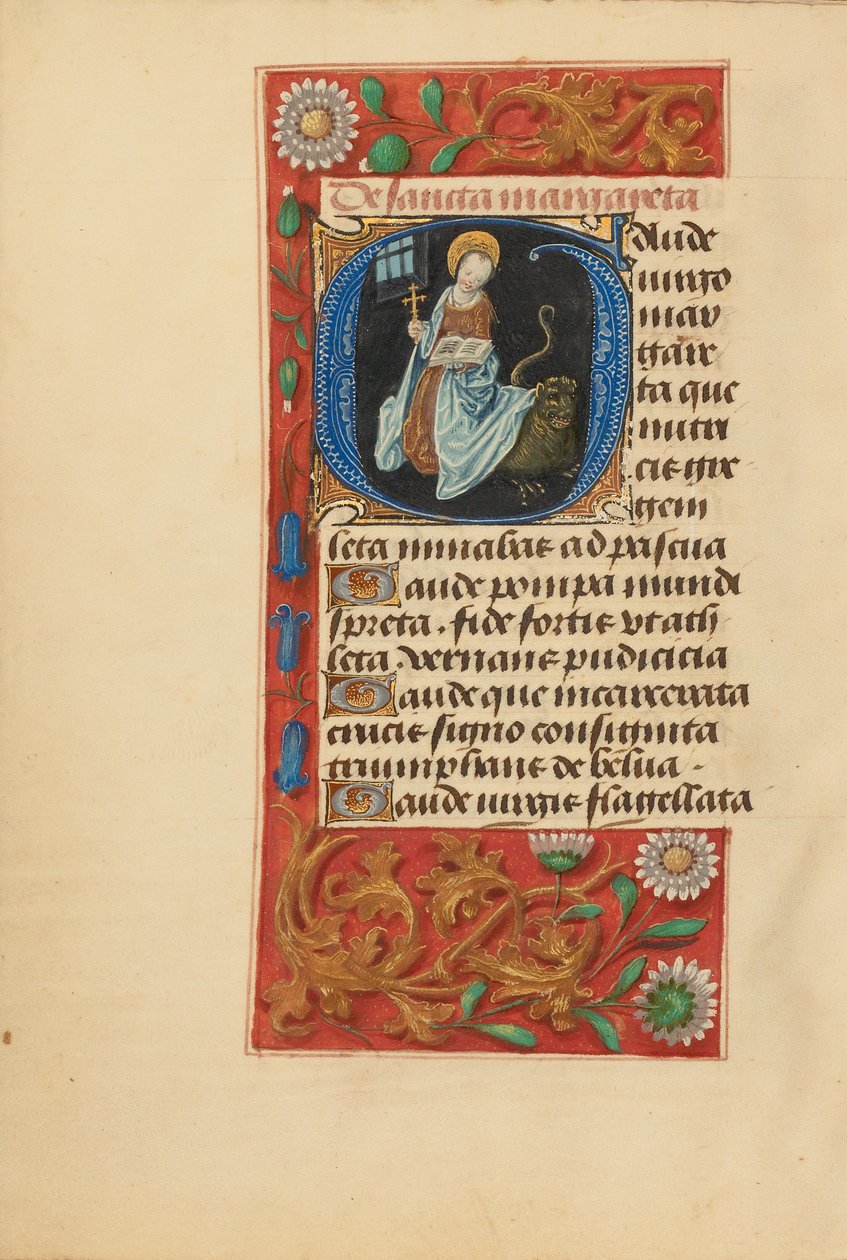 De sancta margareta
Gaude
uirgo
mar
gare
ta que
nutri
cis gre
gem
leta minabas ad pascua
Gaude pompa mundi
spreta . fide fortis vt ath
leta . vernans pudicicia
Gaude que incarcerata
crucis signo consignita
triumphans de belua .
Gaude uirgis flagellata